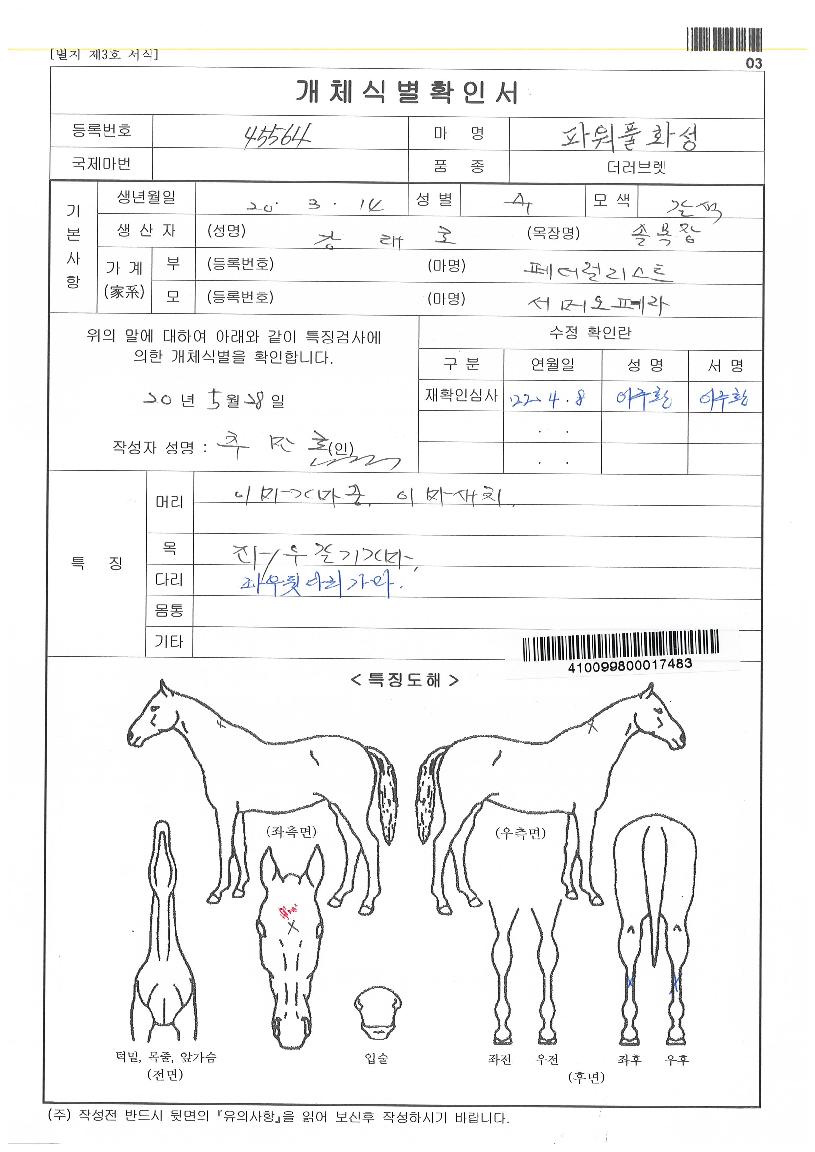 [별지 제3호 서식]
03
개체식별확인서
등록번호 45564 마 명 파워풀화성
국제마번 품 종 더러브렛
기본사항
생년월일 20. 3. 14 성 별 수 모 색 갈색
생 산 자 (성명) 래 (목장명)
가 계 (家系) 부 (등록번호) (마명) 페더럴리스트
모 (등록번호) (마명) 서머오페라
위의 말에 대하여 아래와 같이 특징검사에
의한 개체식별을 확인합니다.
20 년 5월 28일
작성자 성명 : 추 민 (인)
수정 확인란
구 분 연월일 성 명 서 명
재확인심사 '22. 4. 8
. .
. .
특 징
머리 이마가마중, 이마새치.
목 좌/우갈기가마,
다리 좌우뒷다리가마.
몸통
기타
410099800017483
< 특징도해 >
(좌측면) (우측면)
턱밑, 목줄, 앞가슴
(전면)
입술
좌전 우전 좌후 우후
(후면)
(주) 작성전 반드시 뒷면의 『유의사항』을 읽어 보신후 작성하시기 바랍니다.